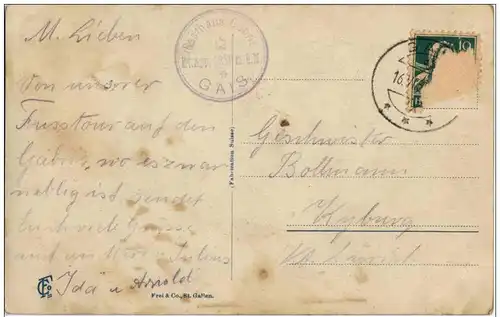 M. Lieben
Von unserer
Fusstour auf den
Gäbris, wo es zwar
neblig ist, sendet
Euch viele Grüsse
Ida u Arnold
GAIS
10
16.
Geschwister
Bollmann
Kyburg
Kt. Zürich
(Fabrication Suisse)
Frei & Co., St. Gallen.